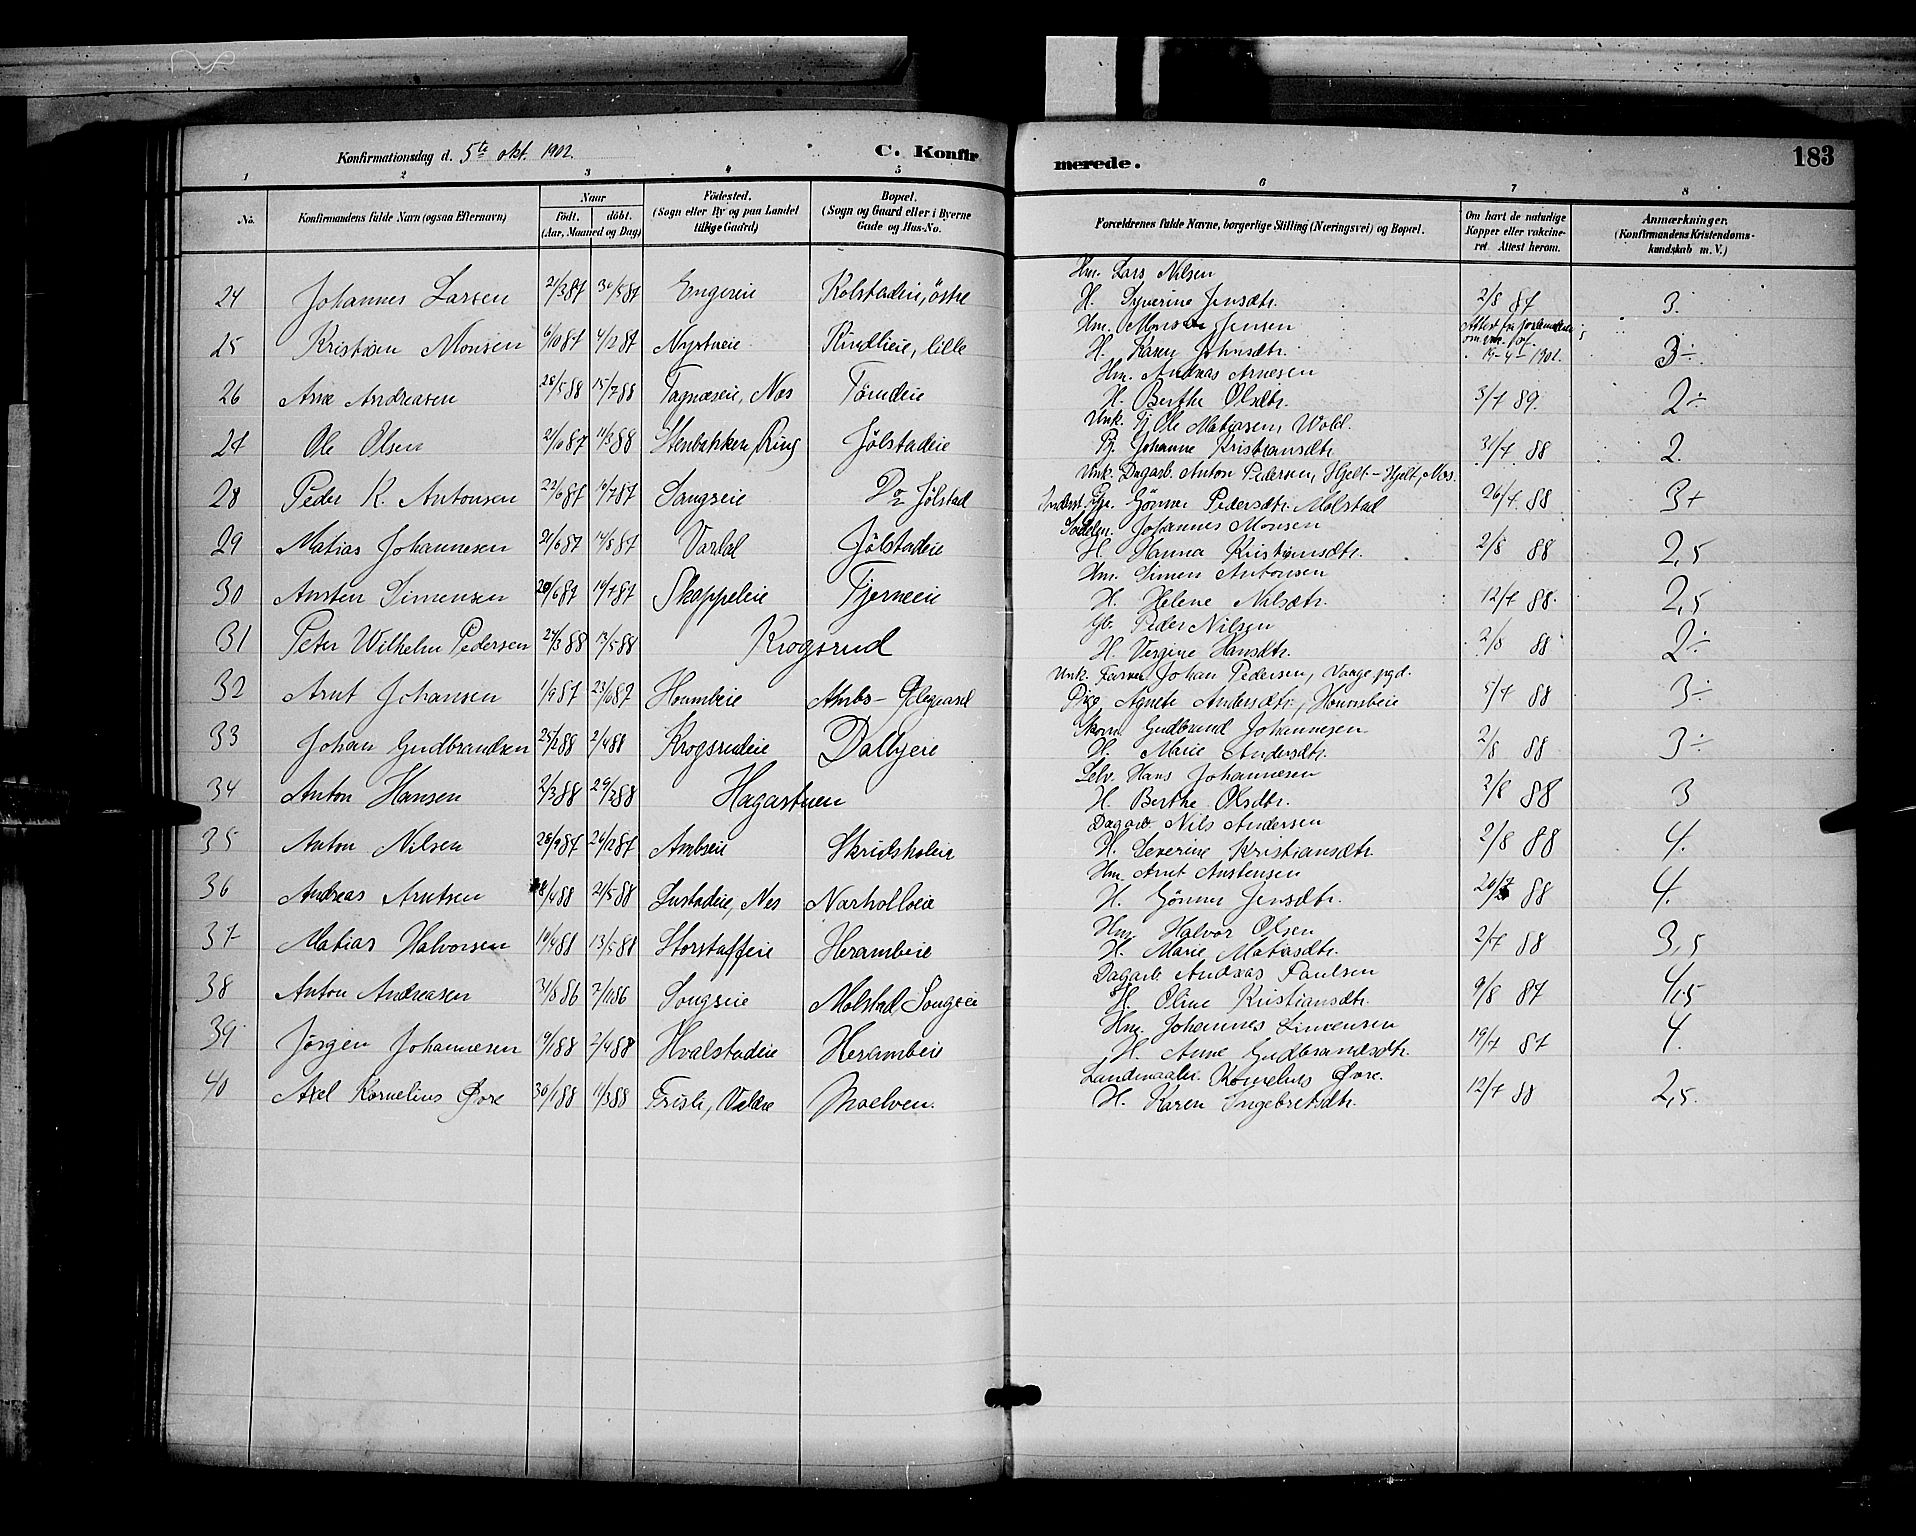 Konfirmationsdag d. 5te okt. 1902. C. Konfirmerede. 183
1 2 3 4 5 6 7 8
No. Konfirmandens fulde Navn (ogsaa Efternavn) Naar Født. døbt. (Aar, Maaned og Dag) Fødested. (Sogn eller By og paa Landet tillige Gaard) Bopæl. (Sogn og Gaard eller i Byerne Gade og Hus-No. Forældrenes fulde Navne, borgerlige Stilling (Næringsvei) og Bopæl. Om havt de naturlige Kopper eller vakcineret. Attest herom. Anmærkninger. (Konfirmandens Kristendomskundskab m. V.)
24 Johannes Larsen 2/3 87 30/5 87 Engeseie Kolstadeie, östre Hm. Lars Nilsen
H. Syverine Jensdtr. 2/8 87 3.
25 Kristian Monsen 6/10 87 4/12 87 Nystueie Rindlieie, lille Hm. Mons Jensen
H. Karen Johnsdtr. 19-4-1902. 3÷
26 Arne Andreasen 28/5 88 15/7 88 Tagnæseie, Nes Tömdeie Hm. Andreas Arnesen
H. Berthe Olsdtr. 3/7 89. 2÷
27 Ole Olsen 11/3 88 Stenbakken, Ring Jølstadeie Unk. Tj. Ole Matiasen, Wold.
Pj. Johanne Kristiansdtr. 31/7 88 2.
28 Peder K. Antonsen 22/6 87 Sangseie Do Jølstad Unk. Dagarb. Anton Pedersen, Hjelt-Hjelt, Nes.
Gönner Pedersdtr. Molstad 26/7 88 3+
29 Matias Johannesen 21/6 87 14/8 87 Vardal Jølstadeie Johannes Monsen
H. Hanna Kristiansdtr. 2/8 88 2,5
30 Austen Simensen 20/6 87 Skappeleie Tjerneeie Hm. Simen Antonsen
H. Helene Nilsdtr. 12/7 88. 2,5
31 Peter Wilhelm Pedersen 27/3 88 13/5 88 Krogsrud Gb. Peder Nilsen
H. Vergine Hansdtr. 2/8 88 2÷
32 Arnt Johansen 1/9 87 Hommeie Ambs- Unk. Johan Pedersen, Vange pgd.
Pige Agnete Andersdtr., Hommeie 5/7 88 3÷
33 Johan Gudbrandsen 25/2 88 2/4 88 Krogsrudeie Dalbyeie Skom. Gudbrand Johannesen
H. Marie Andersdtr. 2/8 88 3÷
34 Anton Hansen 2/3 88 29/3 88 Hagastuen Selv. Hans Johannesen
H. Berthe Olsdtr. 2/8 88 3
35 Anton Nilsen 28/9 87 26/12 87 Ambseie Skridsholeie Dagarb. Nils Andersen
H. Severine Kristiansdtr. 2/8 88 4.
36 Andreas Arntsen 8/4 88 21/5 88 Lustadeie, Nes Narholloeie Hm. Arnt Austensen
H. Gönner Jensdtr. 88 4.
37 Matias Halvorsen 19/4 88 13/5 88 Storstaffeie Herambeie Hm. Halvor Olsen
H. Marie Matiasdtr. 2/7 88 3,5
38 Anton Andreasen 31/8 86 7/11 86 Songseie Molstad, Songseie Dagarb. Andreas Paulsen
H. Oline Kristiansdtr. 9/8 87 4,5
39 Jørgen Johannesen 9/1 88 2/4 88 Hvalstadeie Herambeie Hm. Johannes Simensen
H. Anne Gudbrandsdtr. 19/7 87 4.
40 Axel Kornelius Øvre 30/1 88 11/3 88 Frisli, Veldre Moelven. Landmaaler Kornelius Øvre.
H. Karen Ingebretsdtr. 12/7 88 2,5.